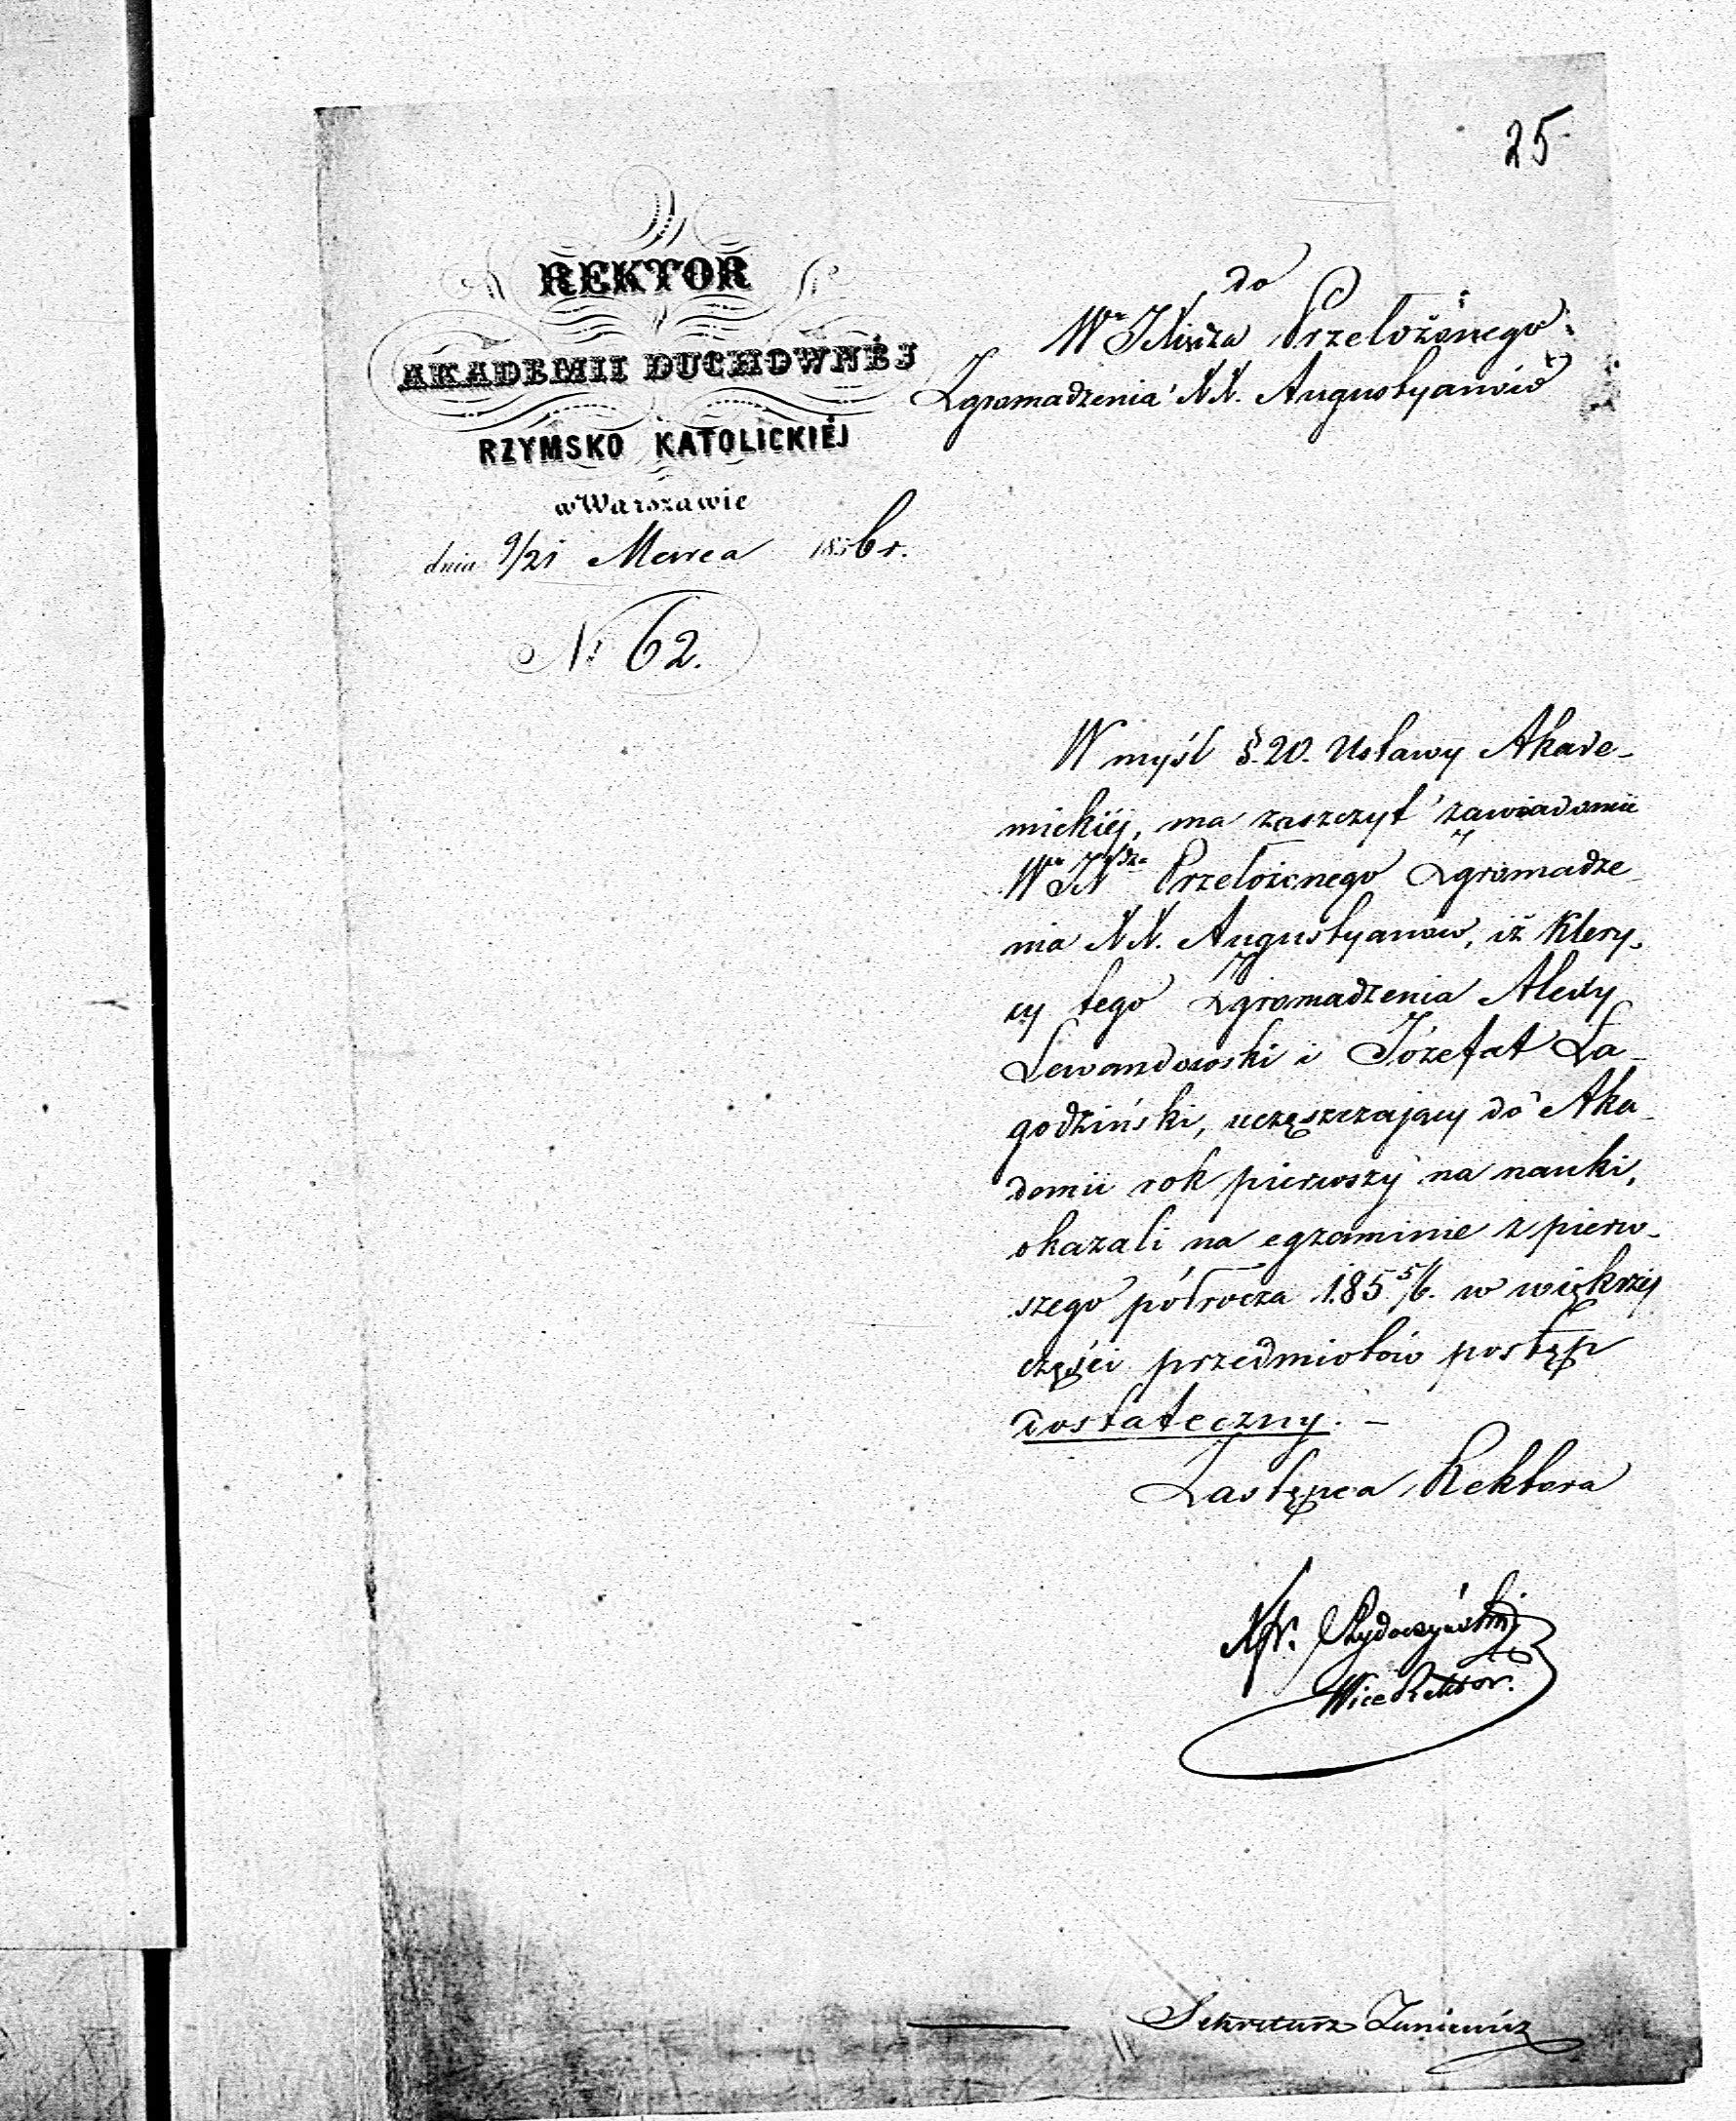 25
REKTOR
AKADEMII DUCHOWNÉJ
RZYMSKO KATOLICKIÉJ
w Warszawie
dnia 9/21 Marca 1856 r.
N: 62.
do
Wo JXiędza Przełożonego
Zgromadzenia XX. Augustyanów
W myśl §. 20. Ustawy Akade-
mickiéj, ma zaszczyt zawiadomić
Wo JXdza Przełożonego Zgromadze-
nia XX. Augustyanów, iż Klery-
cy tego Zgromadzenia Alexy
Lewandowski i Józefat Ła-
godziński, uczęszczający do Aka-
demii rok pierwszy na nauki,
okazali na egzaminie z pierw-
szego półrocza 185 5/6. w większéj
części przedmiotów postęp
dostateczny. –
Zastępca Rektora
Wice Rektor.
Sekretarz